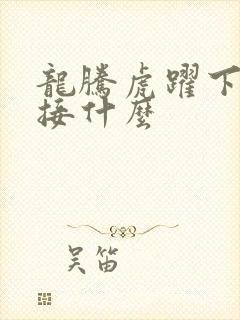 龍騰虎躍下
接什麼
吴笛